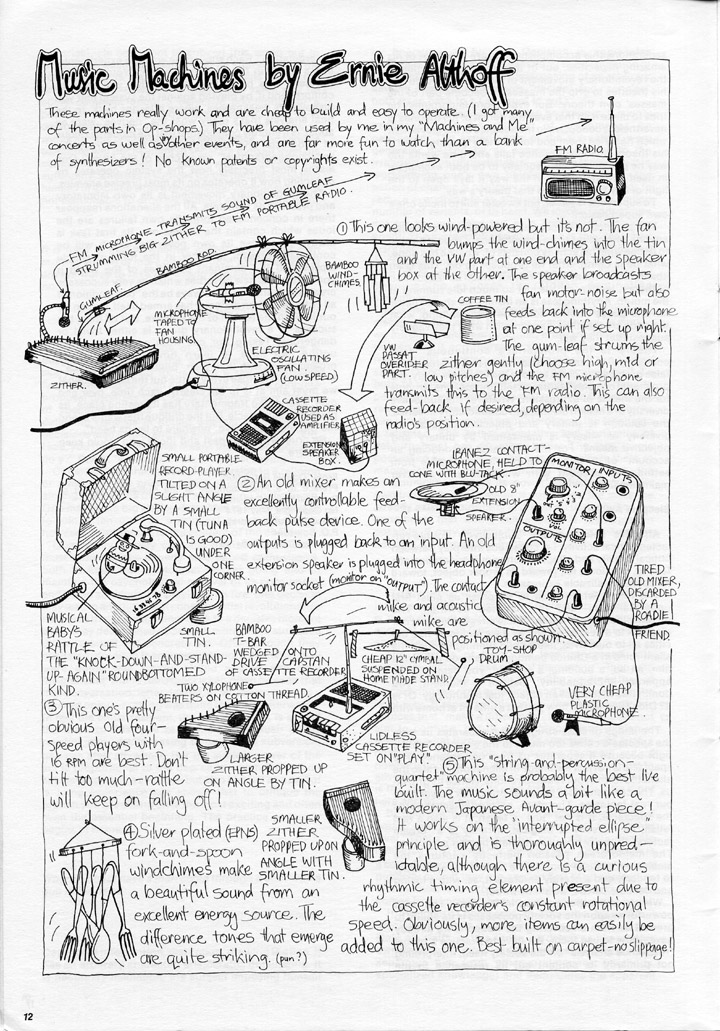 Music Machines by Ernie Althoff
These machines really work and are cheap to build and easy to operate. (I got many
of the parts in Op-shops.) They have been used by me in my "Machines and Me"
concerts as well as in other events, and are far more fun to watch than a bank
of synthesizers! No known patents or copyrights exist.
FM RADIO.
FM MICROPHONE TRANSMITS SOUND OF GUMLEAF
STRUMMING BIG ZITHER TO FM PORTABLE RADIO.
GUMLEAF
BAMBOO ROD.
ZITHER.
MICROPHONE
TAPED TO
FAN
HOUSING
ELECTRIC
OSCILLATING
FAN.
(LOW SPEED)
BAMBOO
WIND-
CHIMES.
VW
PASSAT
OVERIDER
PART.
COFFEE TIN
CASSETTE
RECORDER
USED AS
AMPLIFIER
EXTENSION
SPEAKER
BOX.
① This one looks wind-powered but it's not. The fan
bumps the wind-chimes into the tin
and the VW part at one end and the speaker
box at the other. The speaker broadcasts
fan motor-noise but also
feeds back into the microphone
at one point if set up right.
The gum-leaf strums the
zither gently (choose high, mid or
low pitches) and the FM microphone
transmits this to the FM radio. This can also
feed-back if desired, depending on the
radio's position.
SMALL PORTABLE
RECORD-PLAYER
TILTED ON A
SLIGHT ANGLE
BY A SMALL
TIN (TUNA
IS GOOD)
UNDER
ONE
CORNER.
16 33 45 78
SMALL
TIN.
MUSICAL
BABY'S
RATTLE OF
THE "KNOCK-DOWN-AND-STAND-
UP-AGAIN" ROUNDBOTTOMED
KIND.
② An old mixer makes an
excellently controllable feed-
back pulse device. One of the
outputs is plugged back to an input. An old
extension speaker is plugged into the headphone
monitor socket (monitor on "OUTPUT"). The contact
mike and acoustic
mike are
positioned as shown.
IBANEZ CONTACT-
MICROPHONE, HELD TO
CONE WITH BLU-TACK.
OLD 8"
EXTENSION
SPEAKER.
MONITOR
INPUTS
VOL
OUTPUTS
TIRED
OLD MIXER,
DISCARDED
BY A
ROADIE
FRIEND.
TOM-SHOP
DRUM
VERY CHEAP
PLASTIC
MICROPHONE.
BAMBOO
T-BAR
WEDGED ONTO
DRIVE CAPSTAN
OF CASSETTE RECORDER
CHEAP 12" CYMBAL
SUSPENDED ON
HOME MADE STAND.
TWO XYLOPHONE
BEATERS ON COTTON THREAD.
LIDLESS
CASSETTE RECORDER
SET ON "PLAY."
LARGER
ZITHER PROPPED UP
ON ANGLE BY TIN.
SMALLER
ZITHER
PROPPED UP ON
ANGLE WITH
SMALLER TIN.
③ This one's pretty
obvious. Old four-
speed players with
16 RPM are best. Don't
tilt too much-rattle
will keep on falling off!
④ Silver plated (EPNS)
fork-and-spoon
windchimes make
a beautiful sound from an
excellent energy source. The
difference tones that emerge
are quite striking. (pun?)
⑤ This "string-and-percussion-
quartet" machine is probably the best I've
built. The music sounds a bit like a
modern Japanese Avant-garde piece!
It works on the "interrupted ellipse"
principle and is thoroughly unpred-
ictable, although there is a curious
rhythmic timing element present due to
the cassette recorder's constant rotational
speed. Obviously, more items can easily be
added to this one. Best built on carpet-no slippage!
12